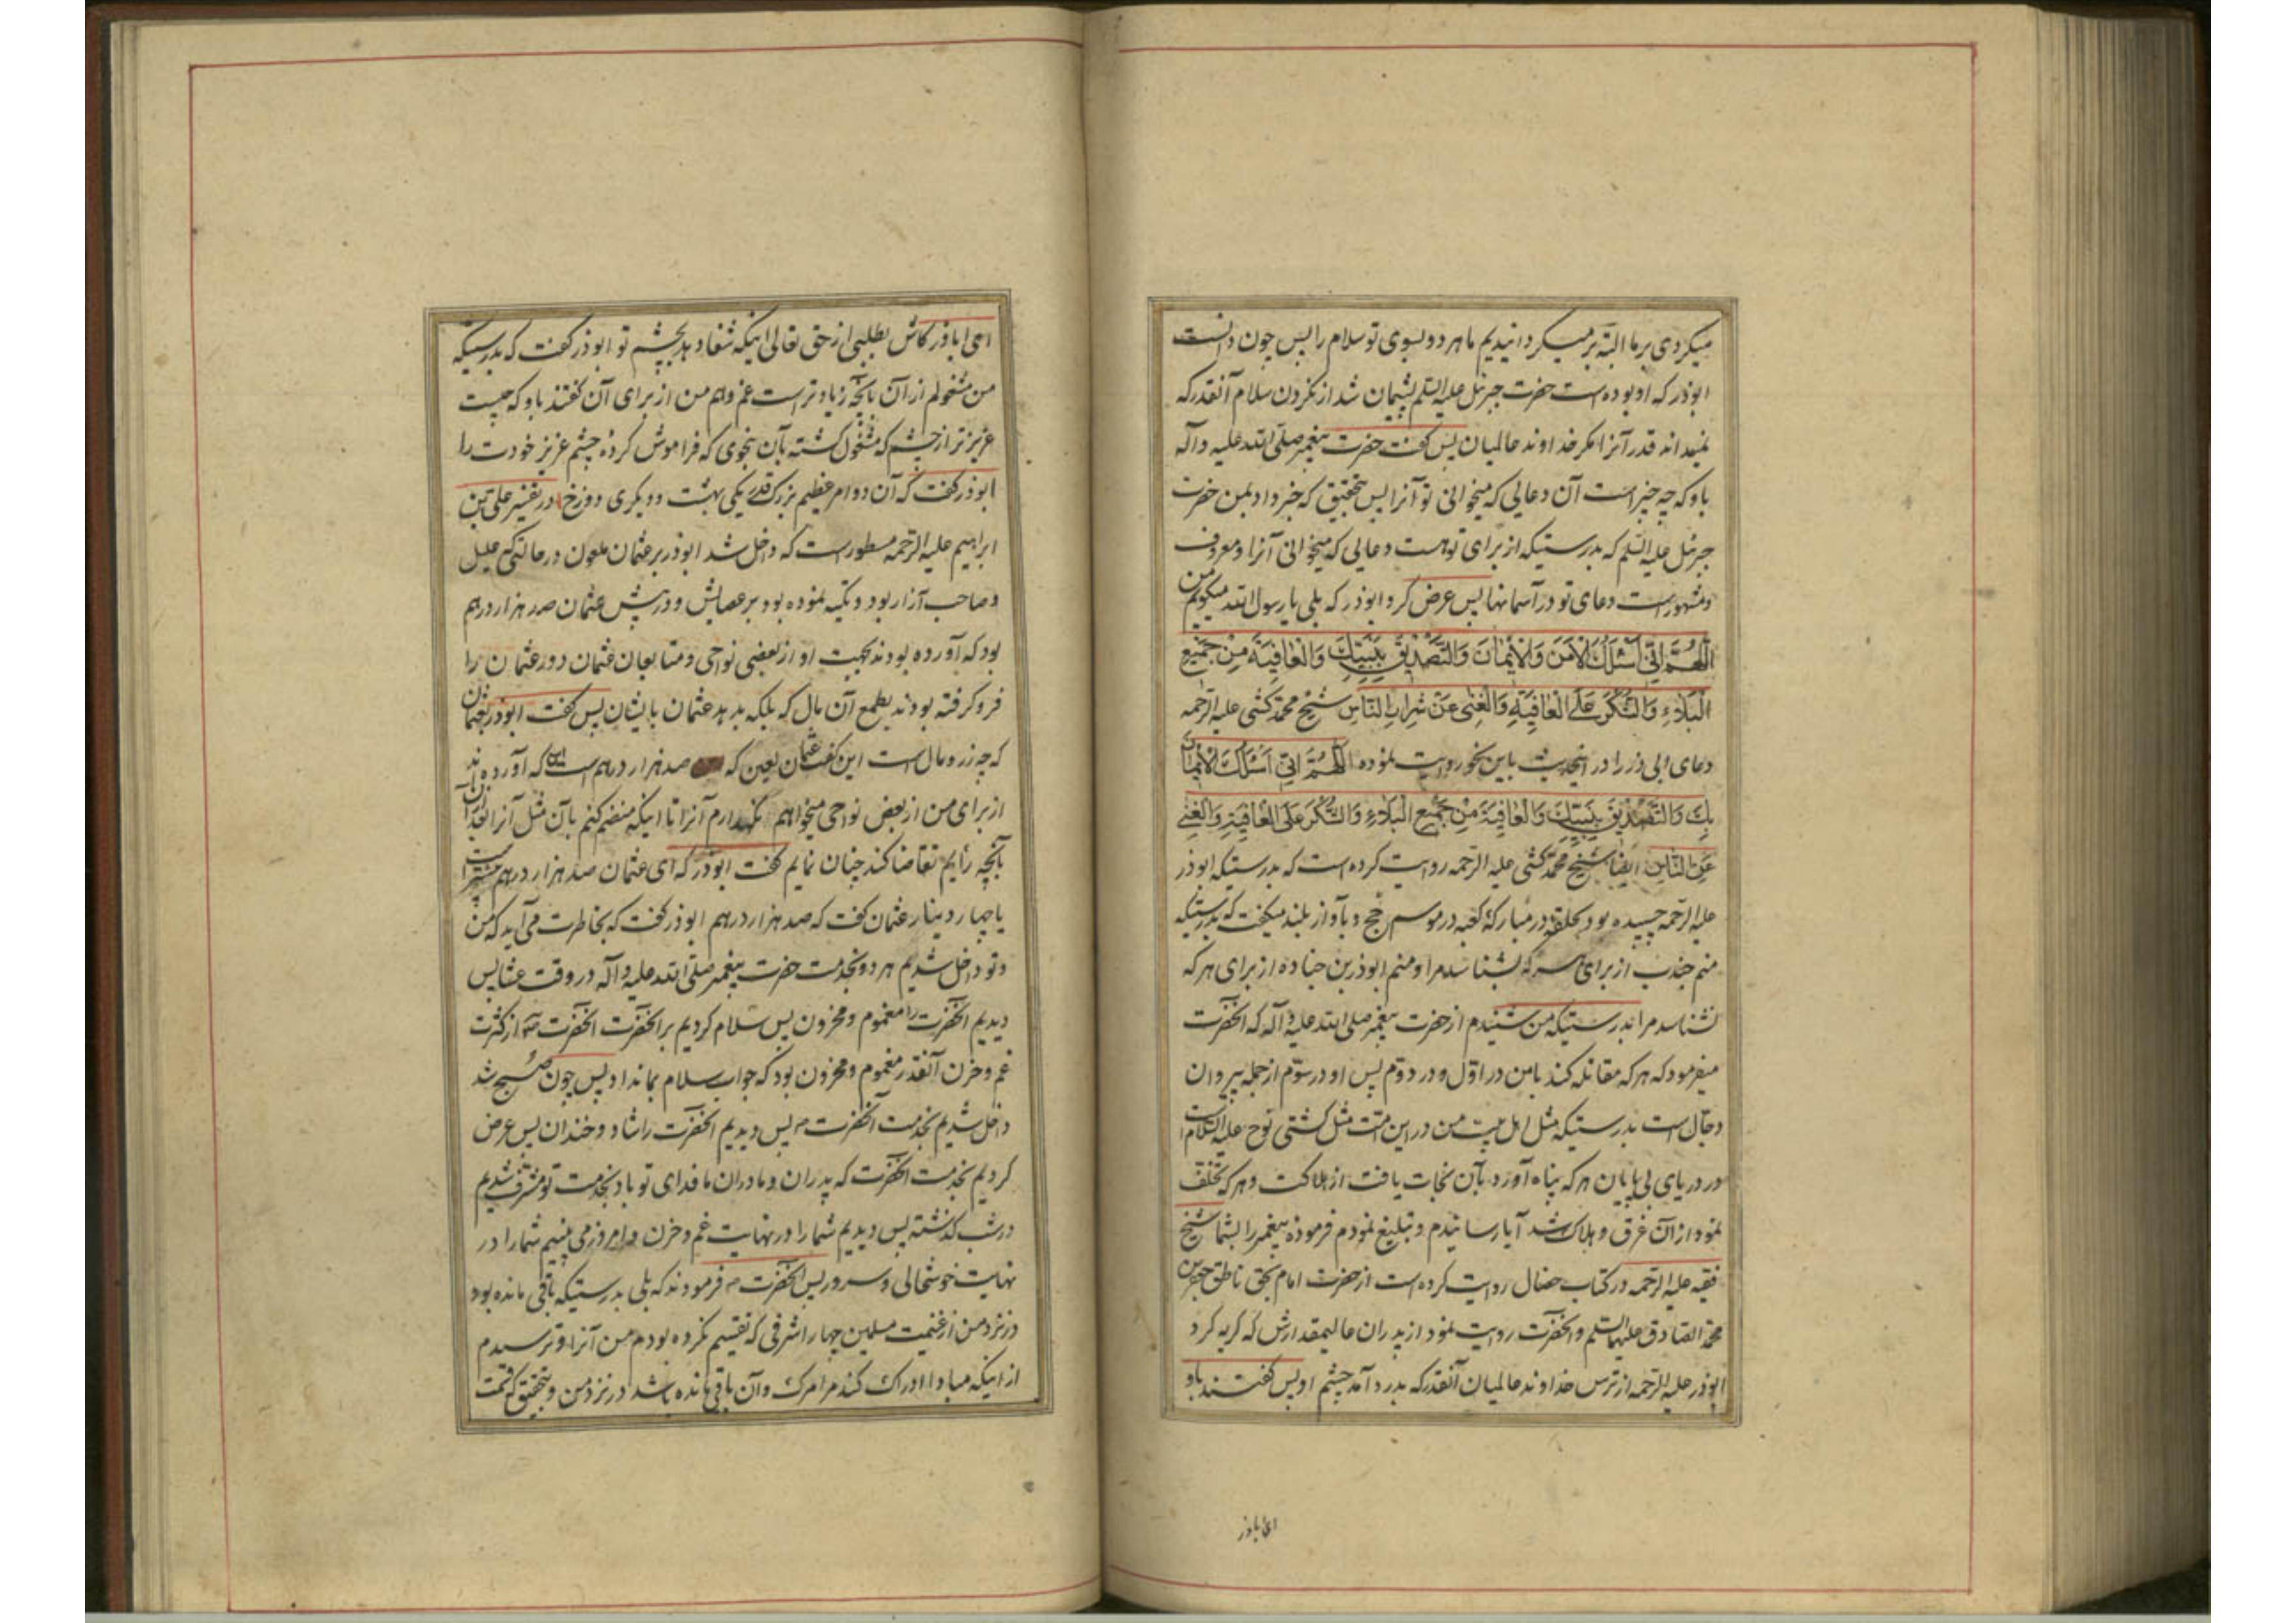 میکردی بر ما البته بر میکردانیدیم ما هر دو بسوی تو سلام را پس چون دانست
ابوذر که او بوده است حضرت جبرئیل علیه السلم پشیمان شد از نکردن سلام آنقدر که
نمیداند قدر آنرا مکر خداوند عالمیان پس کفت حضرت پیغمبر صلی الله علیه و آله
باو که چه چیز است آن دعایی که میخوانی تو آنرا پس بتحقیق که خبر داد بمن حضرت
جبرئیل علیه السلم که بدرستیکه از برای تو هست دعایی که میخوانی آنرا و معروف
و مشهور است دعای تو در آسمانها پس عرض کرد ابوذر که بلی یا رسول الله میکویم من
اَللّهُمَّ اِنّی اَسْئَلُكَ الْاَمْنَ وَالْاِیمانَ وَالتَّصْدیقَ بِنَبِیِّكَ وَالْعافِیَةَ مِنْ جَمیعِ
الْبَلاءِ وَالشُّكْرَ عَلَی الْعافِیَةِ وَالْغِنی عَنْ شِرارِ النّاسِ شیخ محمد کشی علیه الرحمه
دعای ابی ذر را در اینحدیث باین نحو روایت نموده اَللّهُمَّ اِنّی اَسْئَلُكَ الْاِیمانَ
بِكَ وَالتَّصْدیقَ بِنَبِیِّكَ وَالْعافِیَةَ مِنْ جَمیعِ الْبَلاءِ وَالشُّكْرَ عَلَی الْعافِیَةِ وَالْغِنی
عَنِ النّاسِ ایضا شیخ محمد کشی علیه الرحمه روایت کرده است که بدرستیکه ابوذر
علیه الرحمه چسبیده بود بحلقه در مبارکهٔ کعبه در موسم حج و بآواز بلند میکفت که بدرستیکه
منم جندب از برای هر که بشناسد مرا و منم ابوذر بن جناده از برای هر که
نشناسد مرا بدرستیکه من شنیدم از حضرت پیغمبر صلی الله علیه و آله که آنحضرت
میفرمود که هر که مقاتله کند با من در اول و در دوم پس او در سوم از جمله پیروان
دجال است بدرستیکه مثل اهل بیت من در این امت مثل کشتی نوح علیه السلام است
در دریای بی پایان هر که پناه آورد بآن نجات یافت از هلاکت و هر که تخلف
نمود از آن غرق و هلاک شد آیا رسانیدم و تبلیغ نمودم فرمودهٔ پیغمبر را بشما شیخ
فقیه علیه الرحمه در کتاب خصال روایت کرده است از حضرت امام بحق ناطق جعفر بن
محمد الصادق علیهما السلم و آنحضرت روایت نمود از پدران عالیمقدارش که کریه کرد
ابوذر علیه الرحمه از ترس خداوند عالمیان آنقدر که بدرد آمد چشم او پس کفتند باو
ای اباذر
ای اباذر کاش بطلبی از حق تعالی اینکه شفا دهد بچشم تو ابوذر کفت که بدرستیکه
من مشغولم از آن بآنچه زیادتر است غم و هم من از برای آن کفتند باو که چیست
عزیزتر از چشم که مشغول کشتهٔ بآن بنحوی که فراموش کردهٔ چشم عزیز خودت را
ابوذر کفت که آن دو امر عظیم بزرک قدر یکی بهشت و دیکری دوزخ در تفسیر علی بن
ابراهیم علیه الرحمه مسطور است که داخل شد ابوذر بر عثمان ملعون در حالتیکه علیل
و صاحب آزار بود و تکیه نموده بود بر عصایش و در پیش عثمان صد هزار درهم
بود که آورده بودند بجهت او از بعضی نواحی و متابعان عثمان دور عثمان را
فرو کرفته بودند بطمع آن مال که بلکه بدهد عثمان بایشان پس کفت ابوذر بعثمان
که چه زر و مال است این کفت عثمان لعین که صد هزار درهم است که آورده‌اند
از برای من از بعض نواحی میخواهم نکهدارم آنرا تا اینکه منضم کنم بآن مثل آنرا بعد از آن
بآنچه رأیم تقاضا کند چنان نمایم کفت ابوذر که ای عثمان صد هزار درهم بیشتر است
یا چهار دینار عثمان کفت که صد هزار درهم ابوذر کفت که بخاطرت می‌آید که من
و تو داخل شدیم هر دو بخدمت حضرت پیغمبر صلی الله علیه و آله در وقت عشا پس
دیدیم آنحضرت را مغموم و محزون پس سلام کردیم بر آنحضرت آنحضرت ص از کثرت
غم و حزن آنقدر مغموم و محزون بود که جواب سلام بما نداد پس چون صبح شد
داخل شدیم بخدمت آنحضرت ص پس دیدیم آنحضرت را شاد و خندان پس عرض
کردیم بخدمت آنحضرت که پدران و مادران ما فدای تو باد بخدمت تو مشرف شدیم
در شب کذشته پس دیدیم شما را در نهایت غم و حزن و امروز می بینیم شما را در
نهایت خوشحالی و سرور پس آنحضرت ص فرمودند که بلی بدرستیکه باقی مانده بود
در نزد من از غنیمت مسلمین چهار اشرفی که تقسیم نکرده بودم من آنرا و ترسیدم
از اینکه مبادا ادراک کند مرا مرک و آن باقی مانده باشد در نزد من و بتحقیق که قسمت